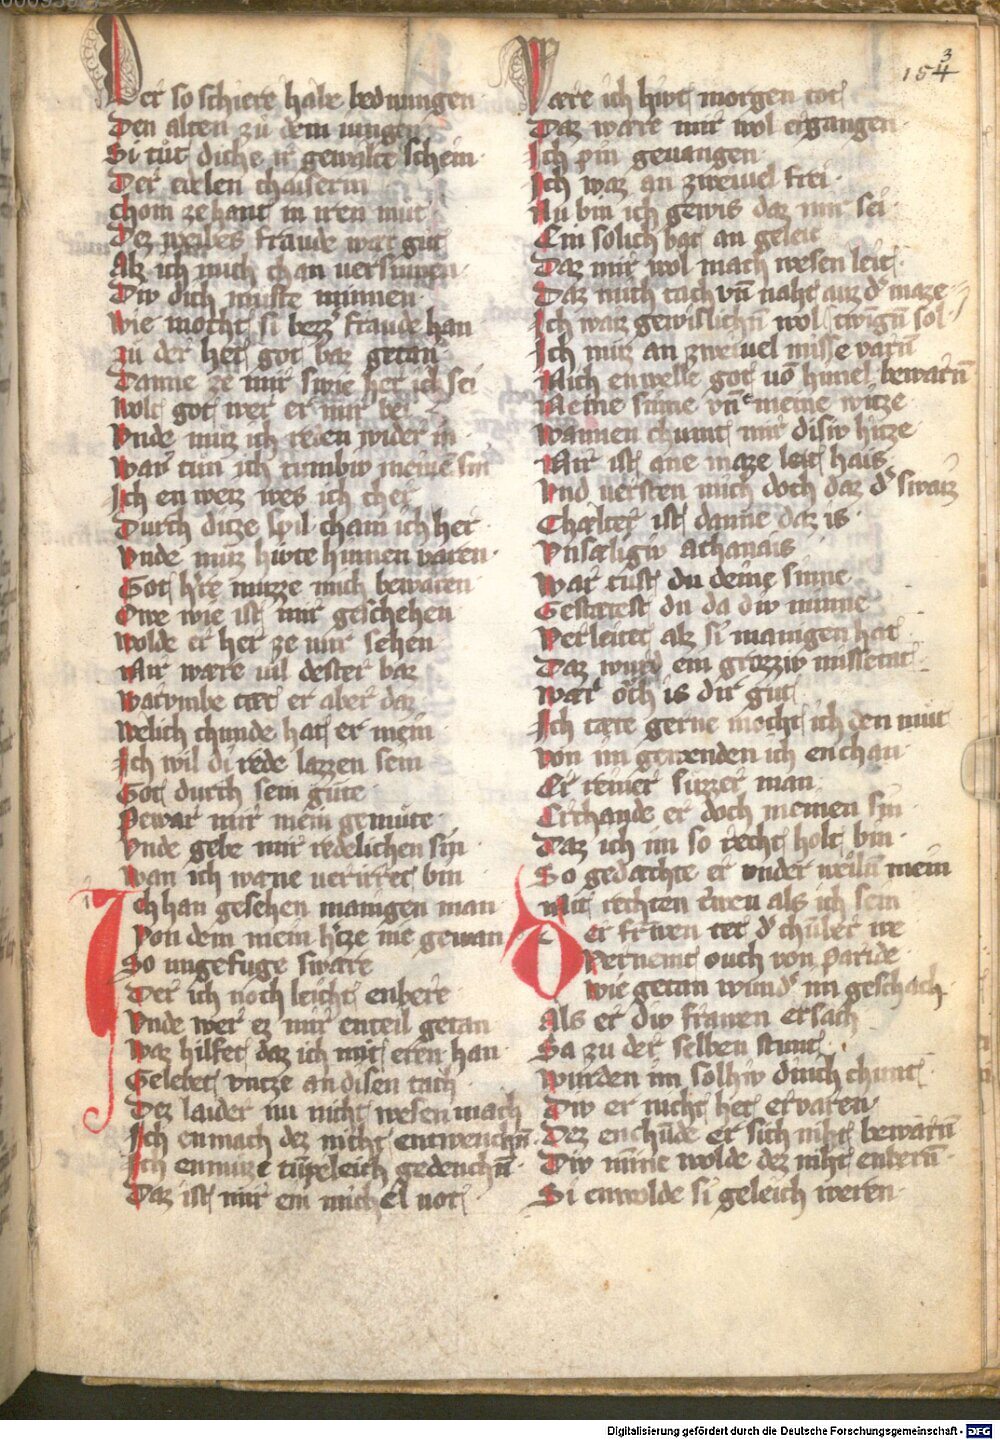 153
154
Der so schiere habe bedwungen
Den alten zů dem iungen
Si tůt diche ir gewalte schein
Der edelen chaiserin
chom ze hant in iren mut
Dez weibes fraude wart gůt
Alz ich mich chan uersinnen
Diw dich muste minnen
wie mocht si bezz' fraude han
zů der het got baz getan
Danne ze mir swie her ich sei
wolt got wer er mir bei
vnde můz ich reden wider in
war tůn ich tumbiw meinē sin
Ich en weiz wes ich cher
Durch ditze spil cham ich her
vnde můz hiwte hinnen varen
Got h're můzze mich bewaren
Owe wie ist mir geschehen
wolde er her ze mir sehen
Mir ware uil dester baz
warvmbe tæt er aber daz
welich chunde hat er mein
Ich wil di rede lazzen sein
Got durch sein gůte
Bewar mir mein gemůte
vnde gebe mir redelichen sin
wan ich wæne uerirret bin
Ich han gesehen manigen man
Von dem mein h'tze nie gewan
So ungefuge sware
Der ich noch leicht enbere
vnde wer ez mir enteil getan
waz hilfet daz ich mit eren han
Gelebet vntze an disen tach
Dez laider nu nicht wesen mach
Ich enmach dez nicht entwenchn̄
Ich enmůze tůgeleich gedenchn̄
Daz ist mir ein michel not
Wære ich hiwt morgen tot
Daz ware mir wol ergangen
Ich pin geuangen
Ich waz an zweiuel frei
Nu bin ich gewis daz mir sei
Ein solich bat an geleit
Daz mir wol mach wesen leit
Daz mich tach vn̄ naht auz d' maze
Ich waiz gewislichn̄ wol twign̄ sol
Ich můz an zweiuel misse varn̄
Mich enwelle got uō himel bewarn̄
Meine sinne vn̄ meine witze
wannen chumt mir disiw hitze
Mir ist ane maze leit haiz
vnd uersten mich doch daz d' swaiz
Chælter ist danne daz is
vnsæligiw Athanais
war tůst du deine sinne
Gestatest du da diw minne
verleitet alz si manigen hat
Daz wurd ein grozziw missetat
war och is dir gůt
Ich tæte gerne mocht ich den můt
von im gewenden ich enchan
Er reiner sůzzer man
Erchande er doch meinen sin
Daz ich im so recht holt bin
So gedæchte er under weiln̄ mein
Mit rechten triwen als ich sein
Der friwen tet d' chůler we
vernemt ouch von paride
wie getan wund' im geschach
Als er diw frawen ersach
Sa zu der selben stunt
wurden im solhiw dinch chunt
Diw er nicht het ervaren
Dez enchůde er sich niht bewarn̄
Diw minne wolde dez niht enbern̄
Si enwolde si geleich weren
Digitalisierung gefördert durch die Deutsche Forschungsgemeinschaft - DFG